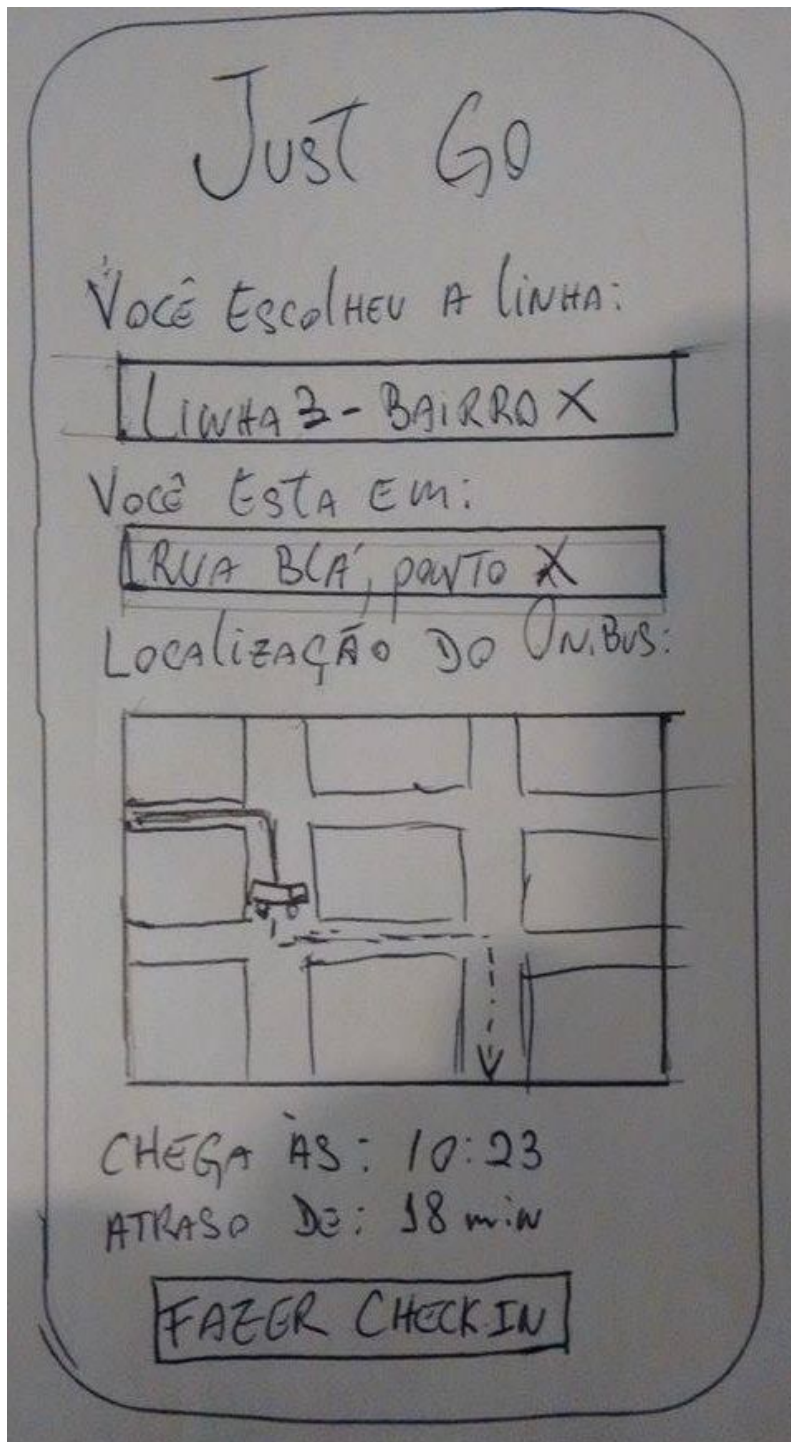 Just Go
Você Escolheu a linha:
LINHA 3 - BAIRRO X
Você Esta em:
RUA BLÁ, ponto X
Localização do Ônibus:
CHEGA ÀS: 10:23
ATRASO DE: 18 min
FAZER CHECK IN